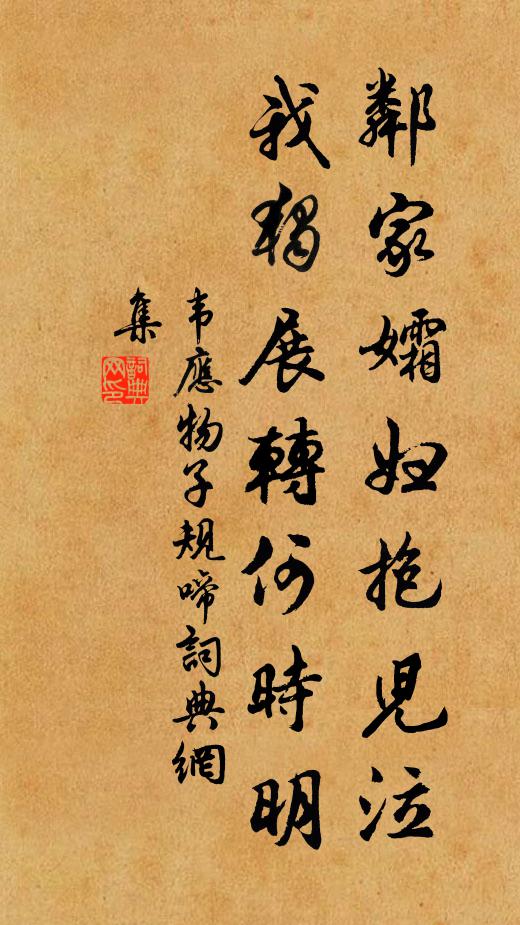 鄰家孀婦抱兒泣
我獨展轉何時明
韦應物子規啼詞典網
集
詞典
网印